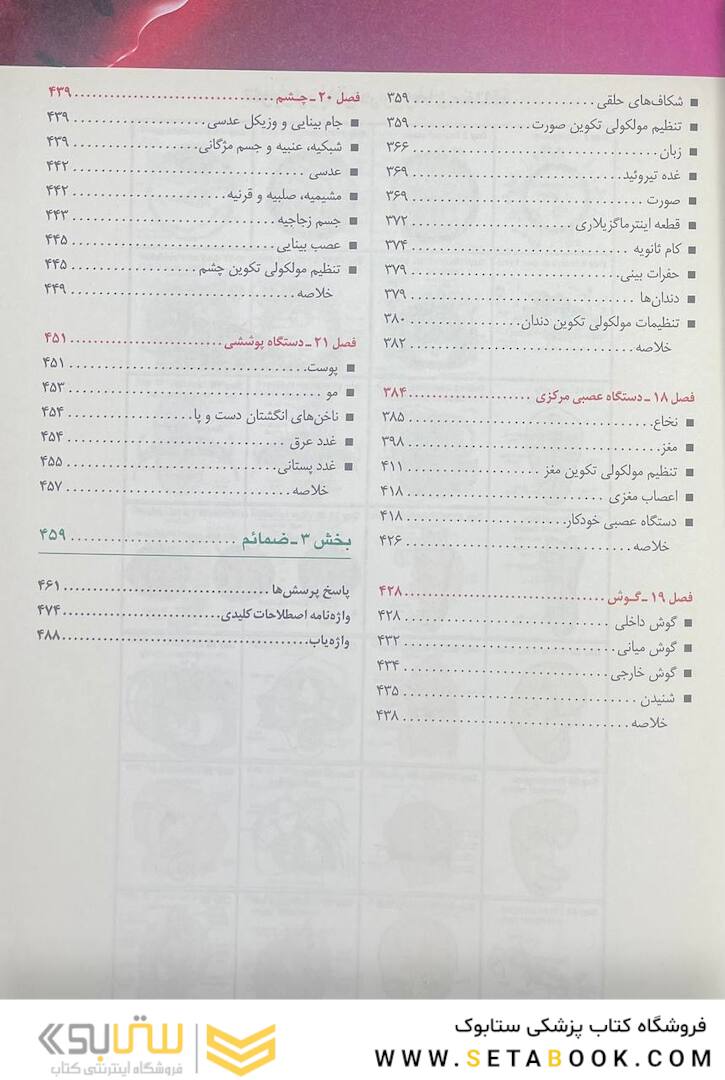 ■ شکاف‌های حلقی ............................ ۳۵۹
■ تنظیم مولکولی تکوین صورت ................. ۳۵۹
■ زبان ..................................... ۳۶۶
■ غده تیروئید .............................. ۳۶۹
■ صورت ..................................... ۳۶۹
■ قطعه اینترماگزیلاری ...................... ۳۷۲
■ کام ثانویه ............................... ۳۷۴
■ حفرات بینی ............................... ۳۷۹
■ دندان‌ها ................................. ۳۷۹
■ تنظیمات مولکولی تکوین دندان .............. ۳۸۰
خلاصه ..................................... ۳۸۲
فصل ۱۸ ـ دستگاه عصبی مرکزی ................. ۳۸۴
■ نخاع ..................................... ۳۸۵
■ مغز ...................................... ۳۹۸
■ تنظیم مولکولی تکوین مغز .................. ۴۱۱
■ اعصاب مغزی ............................... ۴۱۸
■ دستگاه عصبی خودکار ....................... ۴۱۸
خلاصه ..................................... ۴۲۶
فصل ۱۹ ـ گوش ............................... ۴۲۸
■ گوش داخلی ................................ ۴۲۸
■ گوش میانی ................................ ۴۳۲
■ گوش خارجی ................................ ۴۳۴
■ شنیدن .................................... ۴۳۵
خلاصه ..................................... ۴۳۸
فصل ۲۰ ـ چشم ............................... ۴۳۹
■ جام بینایی و وزیکل عدسی .................. ۴۳۹
■ شبکیه، عنبیه و جسم مژگانی ................ ۴۳۹
■ عدسی ..................................... ۴۴۲
■ مشیمیه، صلبیه و قرنیه .................... ۴۴۲
■ جسم زجاجیه ............................... ۴۴۳
■ عصب بینایی ............................... ۴۴۵
■ تنظیم مولکولی تکوین چشم .................. ۴۴۵
خلاصه ..................................... ۴۴۹
فصل ۲۱ ـ دستگاه پوششی ...................... ۴۵۱
■ پوست ..................................... ۴۵۱
■ مو ....................................... ۴۵۳
■ ناخن‌های انگشتان دست و پا ................ ۴۵۴
■ غدد عرق .................................. ۴۵۴
■ غدد پستانی ............................... ۴۵۵
خلاصه ..................................... ۴۵۷
بخش ۳ ـ ضمائم .............................. ۴۵۹
پاسخ پرسش‌ها ............................... ۴۶۱
واژه‌نامه اصطلاحات کلیدی ................... ۴۷۴
واژه‌یاب ................................... ۴۸۸
فروشگاه کتاب پزشکی ستابوک
WWW.SETABOOK.COM
ستابوک
فروشگاه اینترنتی کتاب